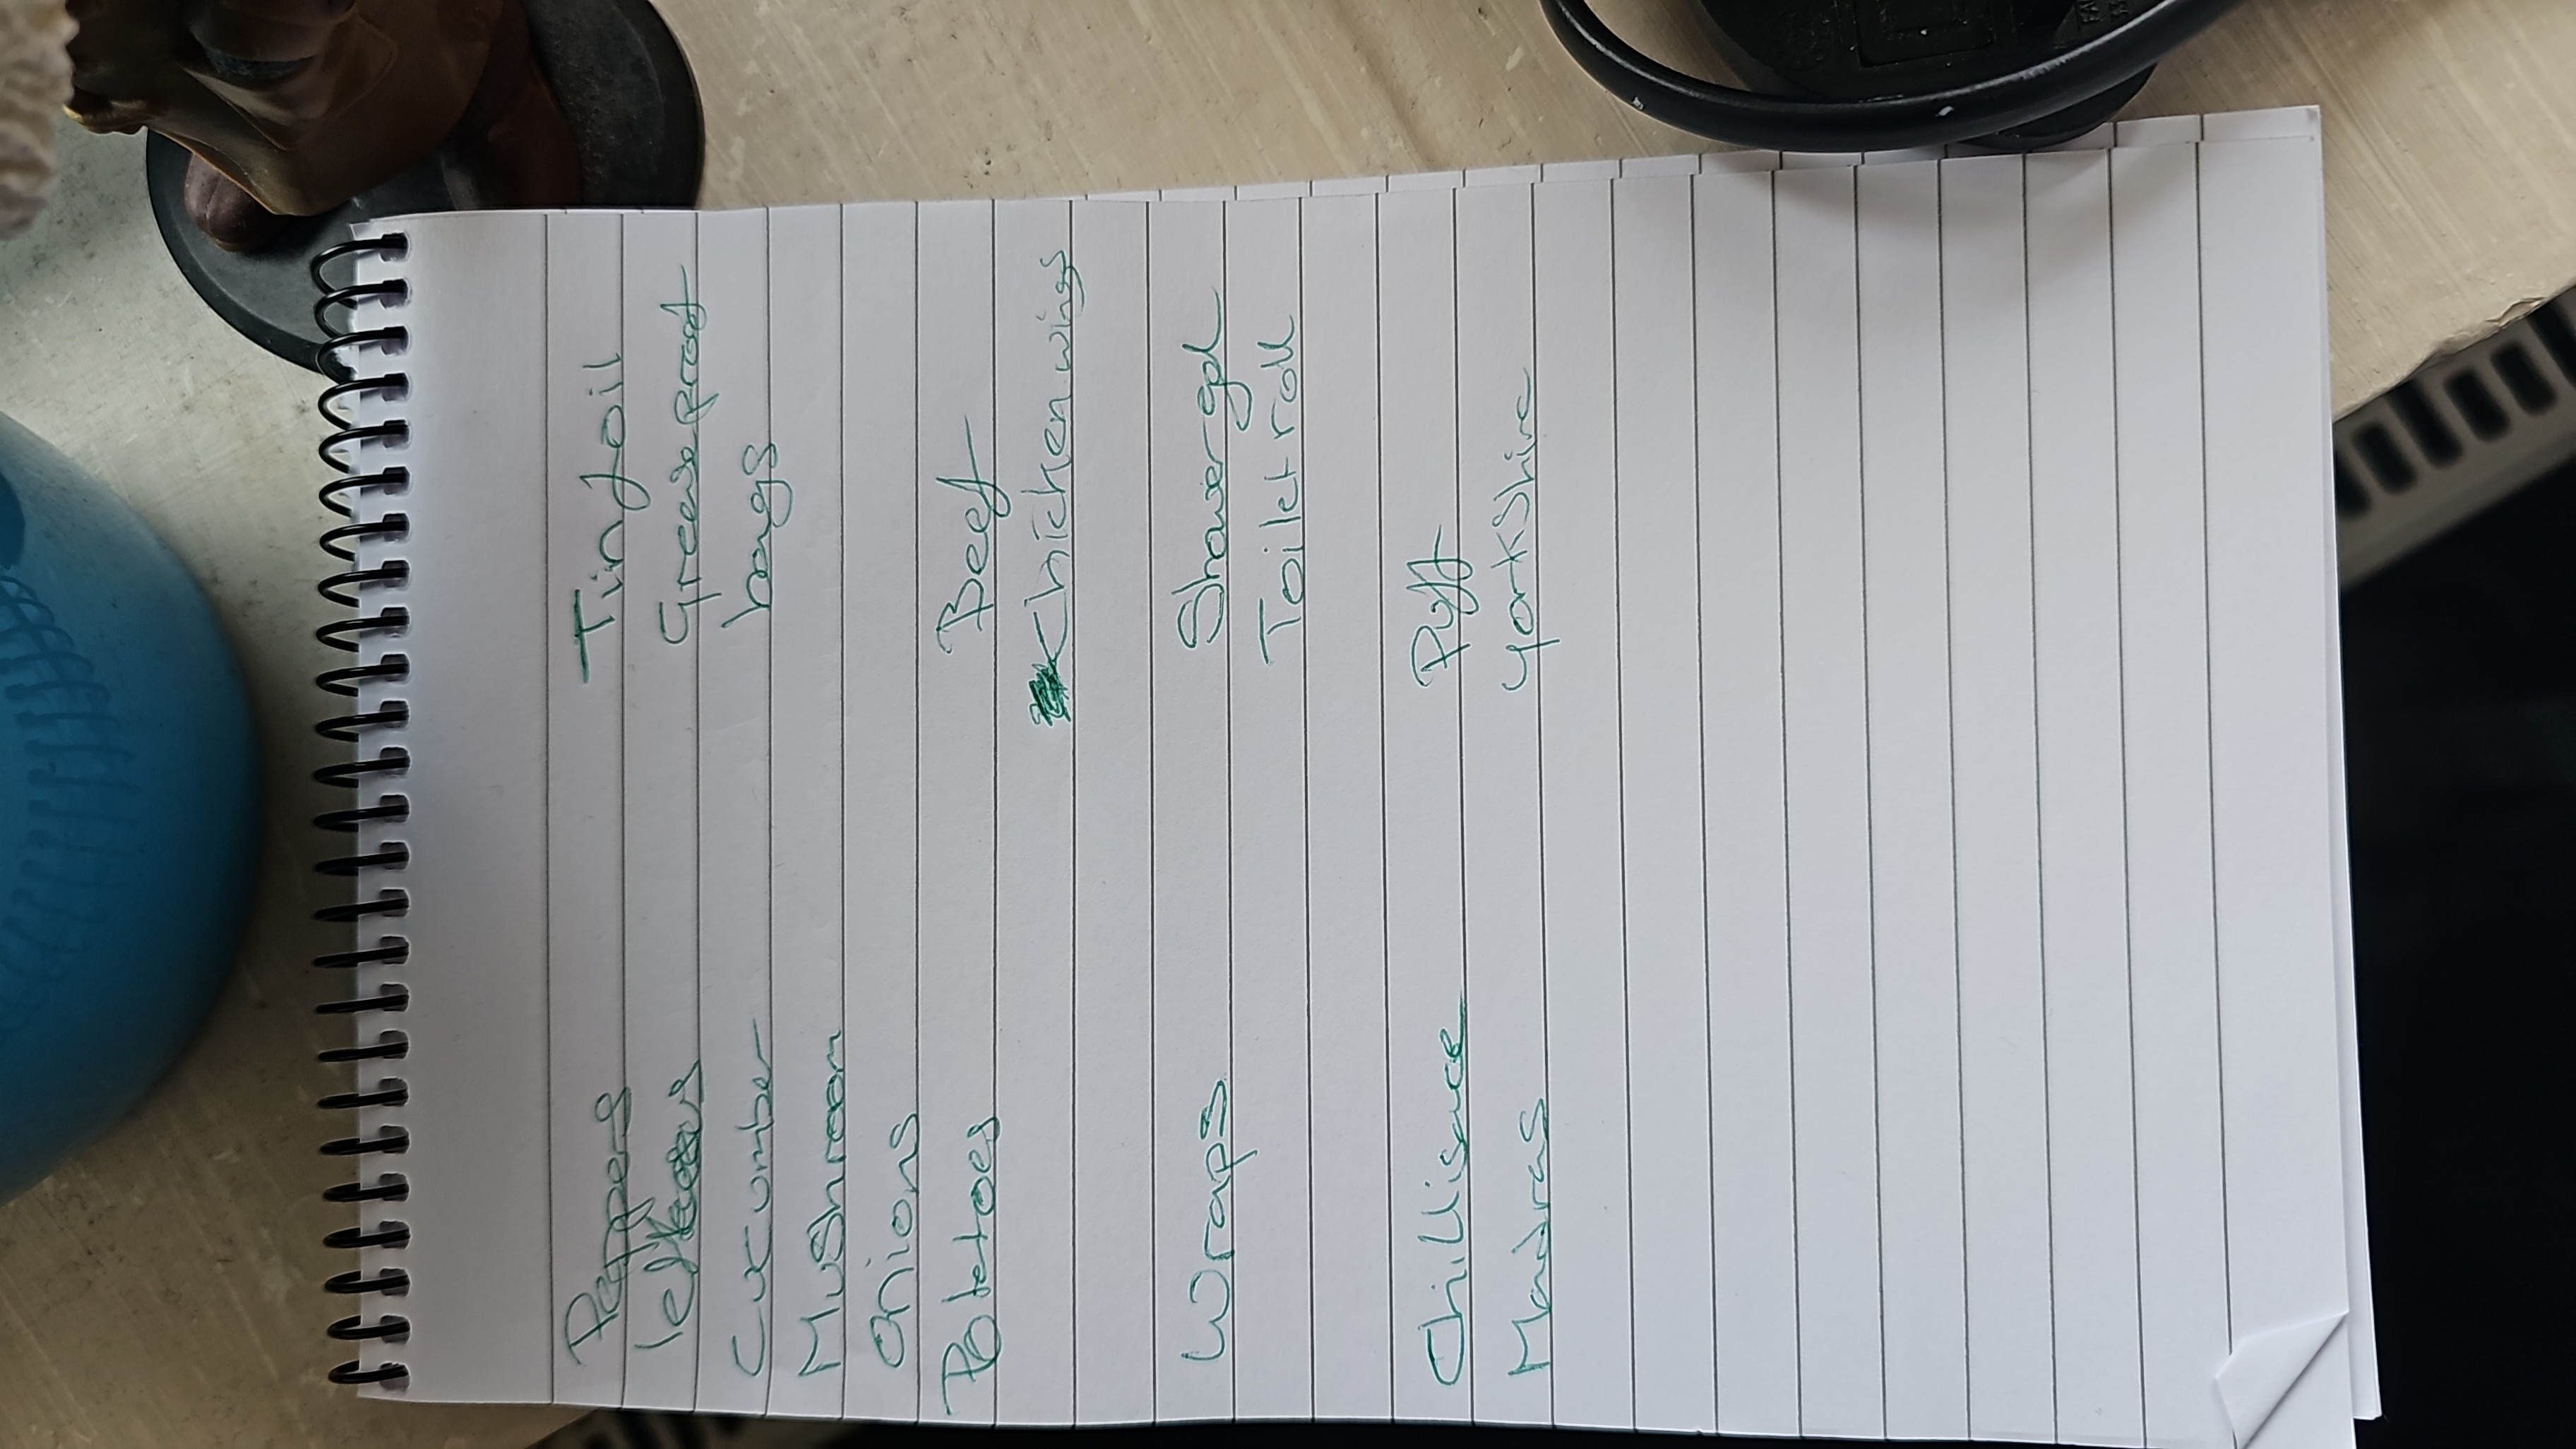 Peppers
Cucumber
Mushroom
Onions
Potetoes
Wraps
Chillisace
Madras
Tin foil
Greese proof
bags
Beef
Chicken wings
Shower gel
Toilet roll
Puff
Yorkshire